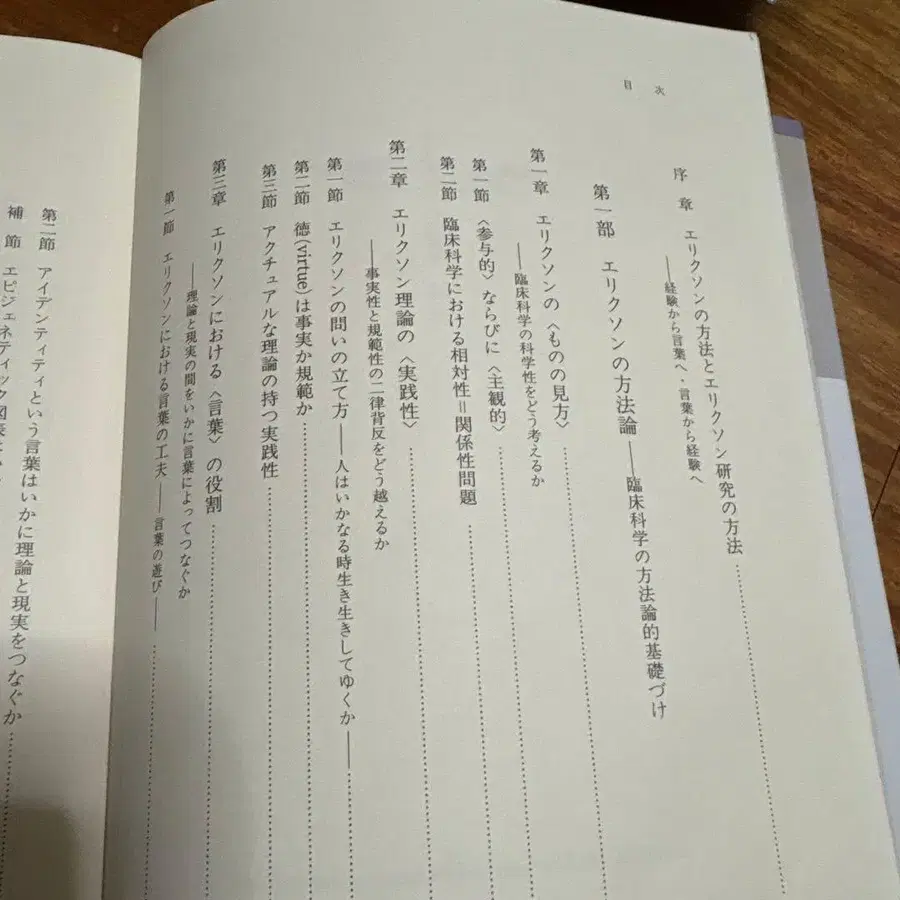 目次
序章 エリクソンの方法とエリクソン研究の方法
――経験から言葉へ・言葉から経験へ
第一部 エリクソンの方法論――臨床科学の方法論的基礎づけ
第一章 エリクソンの〈ものの見方〉
――臨床科学の科学性をどう考えるか
第一節 〈参与的〉ならびに〈主観的〉
第二節 臨床科学における相対性＝関係性問題
第二章 エリクソン理論の〈実践性〉
――事実性と規範性の二律背反をどう越えるか
第一節 エリクソンの問いの立て方――人はいかなる時生き生きしてゆくか――
第二節 徳(virtue)は事実か規範か
第三節 アクチュアルな理論の持つ実践性
第三章 エリクソンにおける〈言葉〉の役割
――理論と現実の間をいかに言葉によってつなぐか
第一節 エリクソンにおける言葉の工夫――言葉の遊び――
第二節 アイデンティティという言葉はいかに理論と現実をつなぐか
補節 エピジェネティック図表